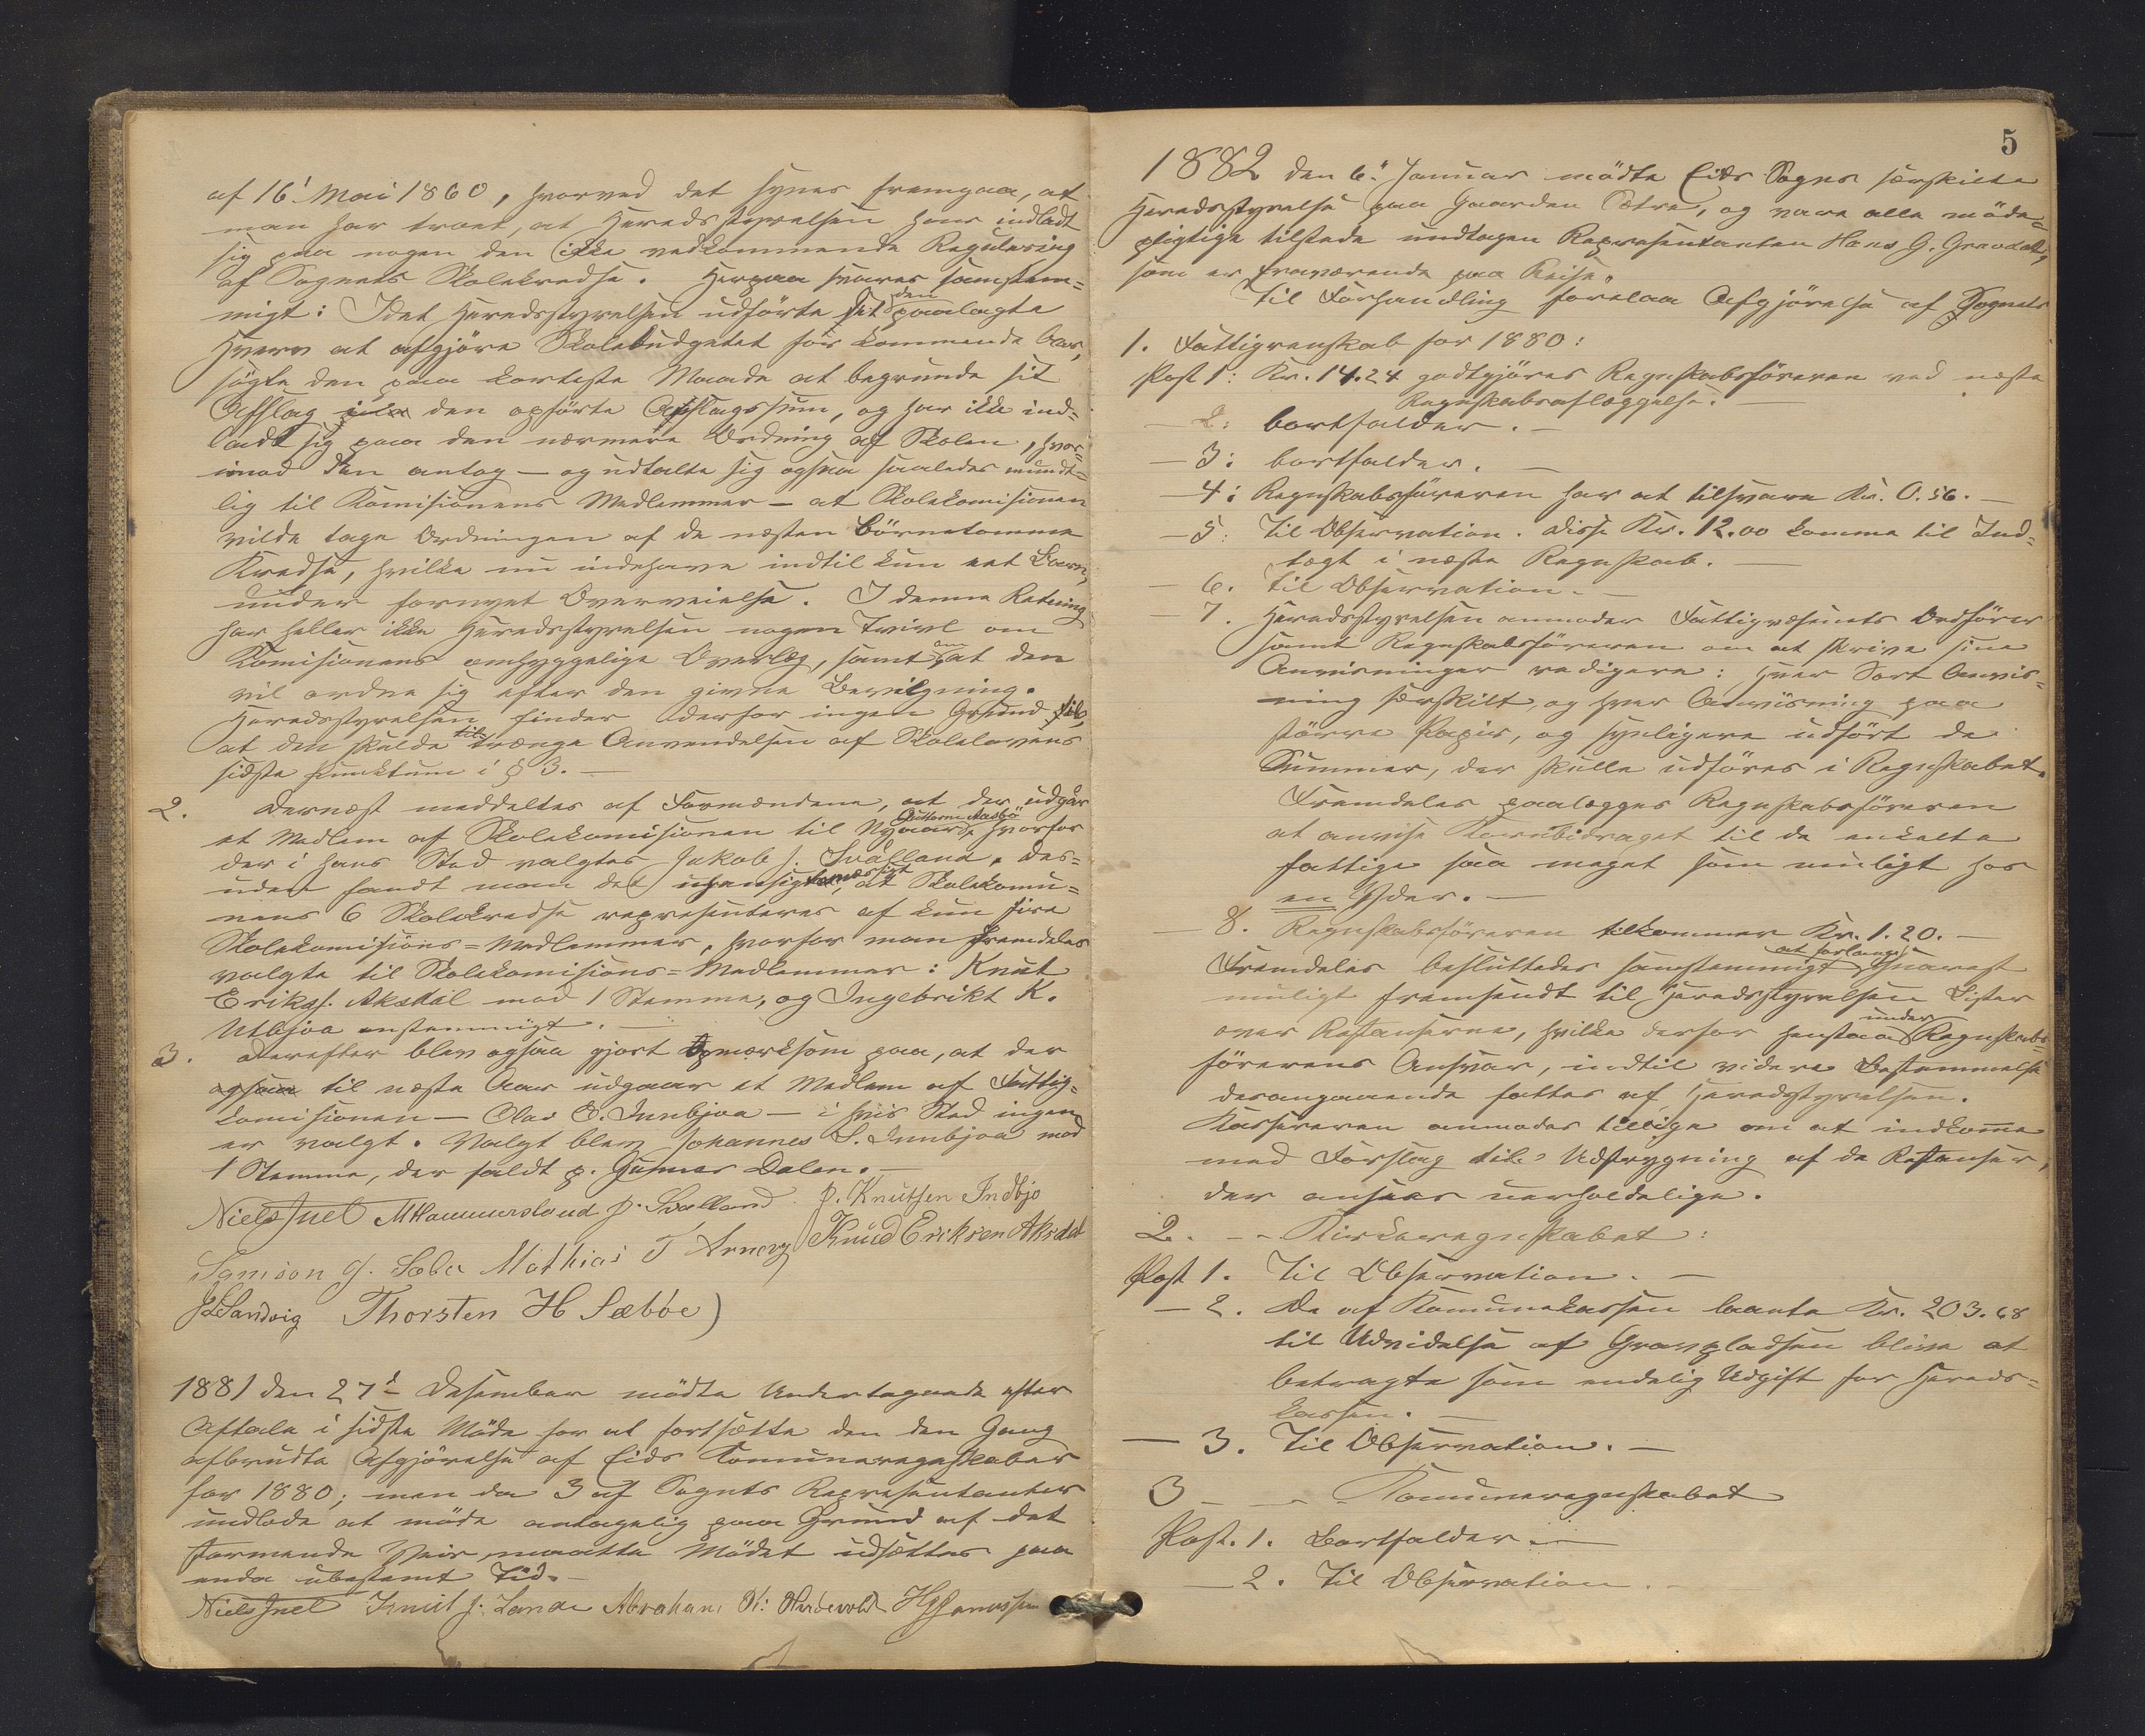 af 16' Mai 1860, hvorved det synes fremgaa, at
man har troet, at Heredsstyrelsen har indladt
sig paa nogen den ikke vedkommende Regulering
af Sognets Skolekredse. Herpaa svares samstem=
migt: Idet Heredsstyrelsen udførte det den paalagte
Hverv at afgjöre Skolebudgetet for kommende Aar,
søgte den paa korteste Maade at begrunde sit
Afslag den opførte Afslagssum, og har ikke ind=
ladt sig paa den nærmere Ordning af Skolen, hvor=
imod den antog — og udtalte sig ogsaa saaledes mundt=
lig til Komisionens Medlemmer — at Skolekomisionen
vilde tage Ordningen af de næsten börnetomme
Kredse, hvilke nu indehave indtil kun eet Barn,
under fornyet Overveielse. I denne Retning
har heller ikke Heredsstyrelsen nogen Tvivl om
Komisionens omhyggelige Overlæg, samt at den
vil ordne sig efter den givne Bevilgning.
Heredsstyrelsen finder derfor ingen Grund til,
at den skulde tiltrænge Anvendelsen af Skolelovens
sidste Punktum i § 3. —
2. Dernæst meddeltes af Formændene, at der udgår
et Medlem af Skolekomisionen til Nyaar, Guttorm Aasbö hvorfor
der i hans Sted valgtes Jakob J. Svålland. Des=
uden fandt man det uhensigtsmæssigt, at Skolekomu=
nens 6 Skolekredse representeres af kun fire
Skolekomisions=Medlemmer, hvorfor man fremdeles
valgte til Skolekomisions=Medlemmer: Knut
Eriks. Aksdal med 1 Stemme, og Ingebrikt K.
Utbjoa enstemmigt. —
3. Derefter blev ogsaa gjort Opmærksom paa, at der
ogsaa til næste Aar udgaar et Medlem af Fattig=
komisionen — Olav E. Innbjoa — i hvis Sted ingen
er valgt. Valgt blev Johannes S. Innbjoa med
1 Stemme, der faldt p. Gunnar Dalen. —
Niels Juel MHammersland J. Svalland P. Knutsen Indbjo
Samson J. Sæbø Mathias T Arnevg Knud Eriksen Aksdal
Sandvig Thorsten H Sæböe)
1881 den 27d Desember mödte Undertegnede efter
Aftale i sidste Möde for at fortsætte den den Gang
afbrudte Afgjörelse af Eids Komuneregnskaber
for 1880; men da 3 af Sognets Repræsentanter
undlode at möde antagelig paa Grund af det
stormende Veir, maatte Mödet udsættes paa
enda ubestemt Tid. —
Niels Juel Knut J. Lande Abraham K: Hardevold
5
1882 den 6te Januar mödte Eids Sogns særskilte
Heredsstyrelse paa Gaarden Ætre, og vare alle möde=
pligtige tilstede undtagen Repræsentanten Hans G. Gravdal,
som er fraværende paa Reise.
Til Forhandling forelaa Afgjörelse af Sognets
1. Fattigrenskab for 1880:
Post 1: Kr. 14.24 godtgjöres Regnskabsföreren ved næste
Regnskabsaflæggelse. —
— 2: bortfalder. —
— 3: bortfalder. —
— 4: Regnskabsföreren har at tilsvare Kr. 0.56. —
— 5: Til Observation. Disse Kr. 12.00 komme til Ind=
tægt i næste Regnskab. —
— 6. Til Observation. —
— 7. Heredsstyrelsen anmoder Fattigvæsenets Ordförer
samt Regnskabsföreren om at skrive sine
Anvisninger redigere: Hver Sort Anvis=
ning særskilt, og hver Anvisning paa
større Papir, og synligere udfört de
Summer, der skulle udföres i Regnskabet.
Fremdeles paalægges Regnskabsföreren
at anvise Kornbidraget til de enkelte
fattige saa meget som muligt hos
en Yder. —
— 8. Regnskabsföreren tilkommer Kr. 1.20. —
Fremdeles besluttedes samstemmigt at forlange snarest
muligt fremsendt til Heredsstyrelsen Lister
over Restanserne, hvilke derfor henstaar under Regnskabs=
förerens Ansvar, indtil videre Bestemmelse
desangaaende fattes af Heredsstyrelsen.
Kassereren anmodes tillige om at indkomme
med Forslag til Udstrygning af de Restanser,
der ansees uerholdelige.
2. - - Kirkeregnskabet:
Post 1. Til Observation. —
— 2. De af Komunekassen laante Kr. 203.68
til Udvidelse af Gravpladsen blive at
betragte som endelig Udgift for Hereds=
kassen. —
— 3. Til Observation. —
3 - - - Komuneregnskabet
Post. 1. Bortfalder. —
— 2. Til Observation. —